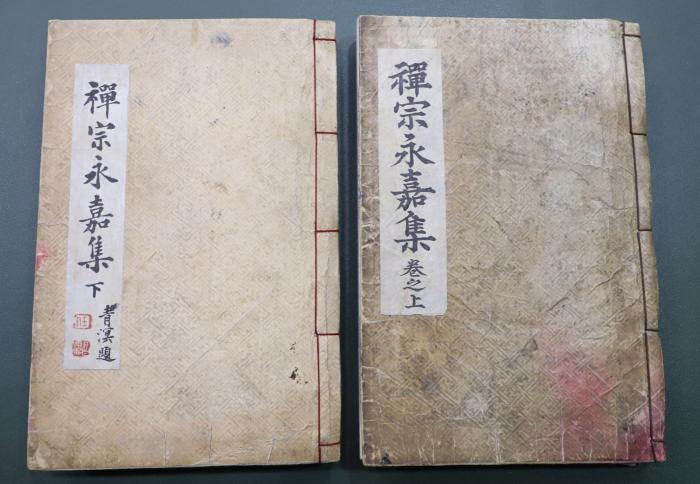 禪宗永嘉集
卷之上
禪宗永嘉集 下
青溟題